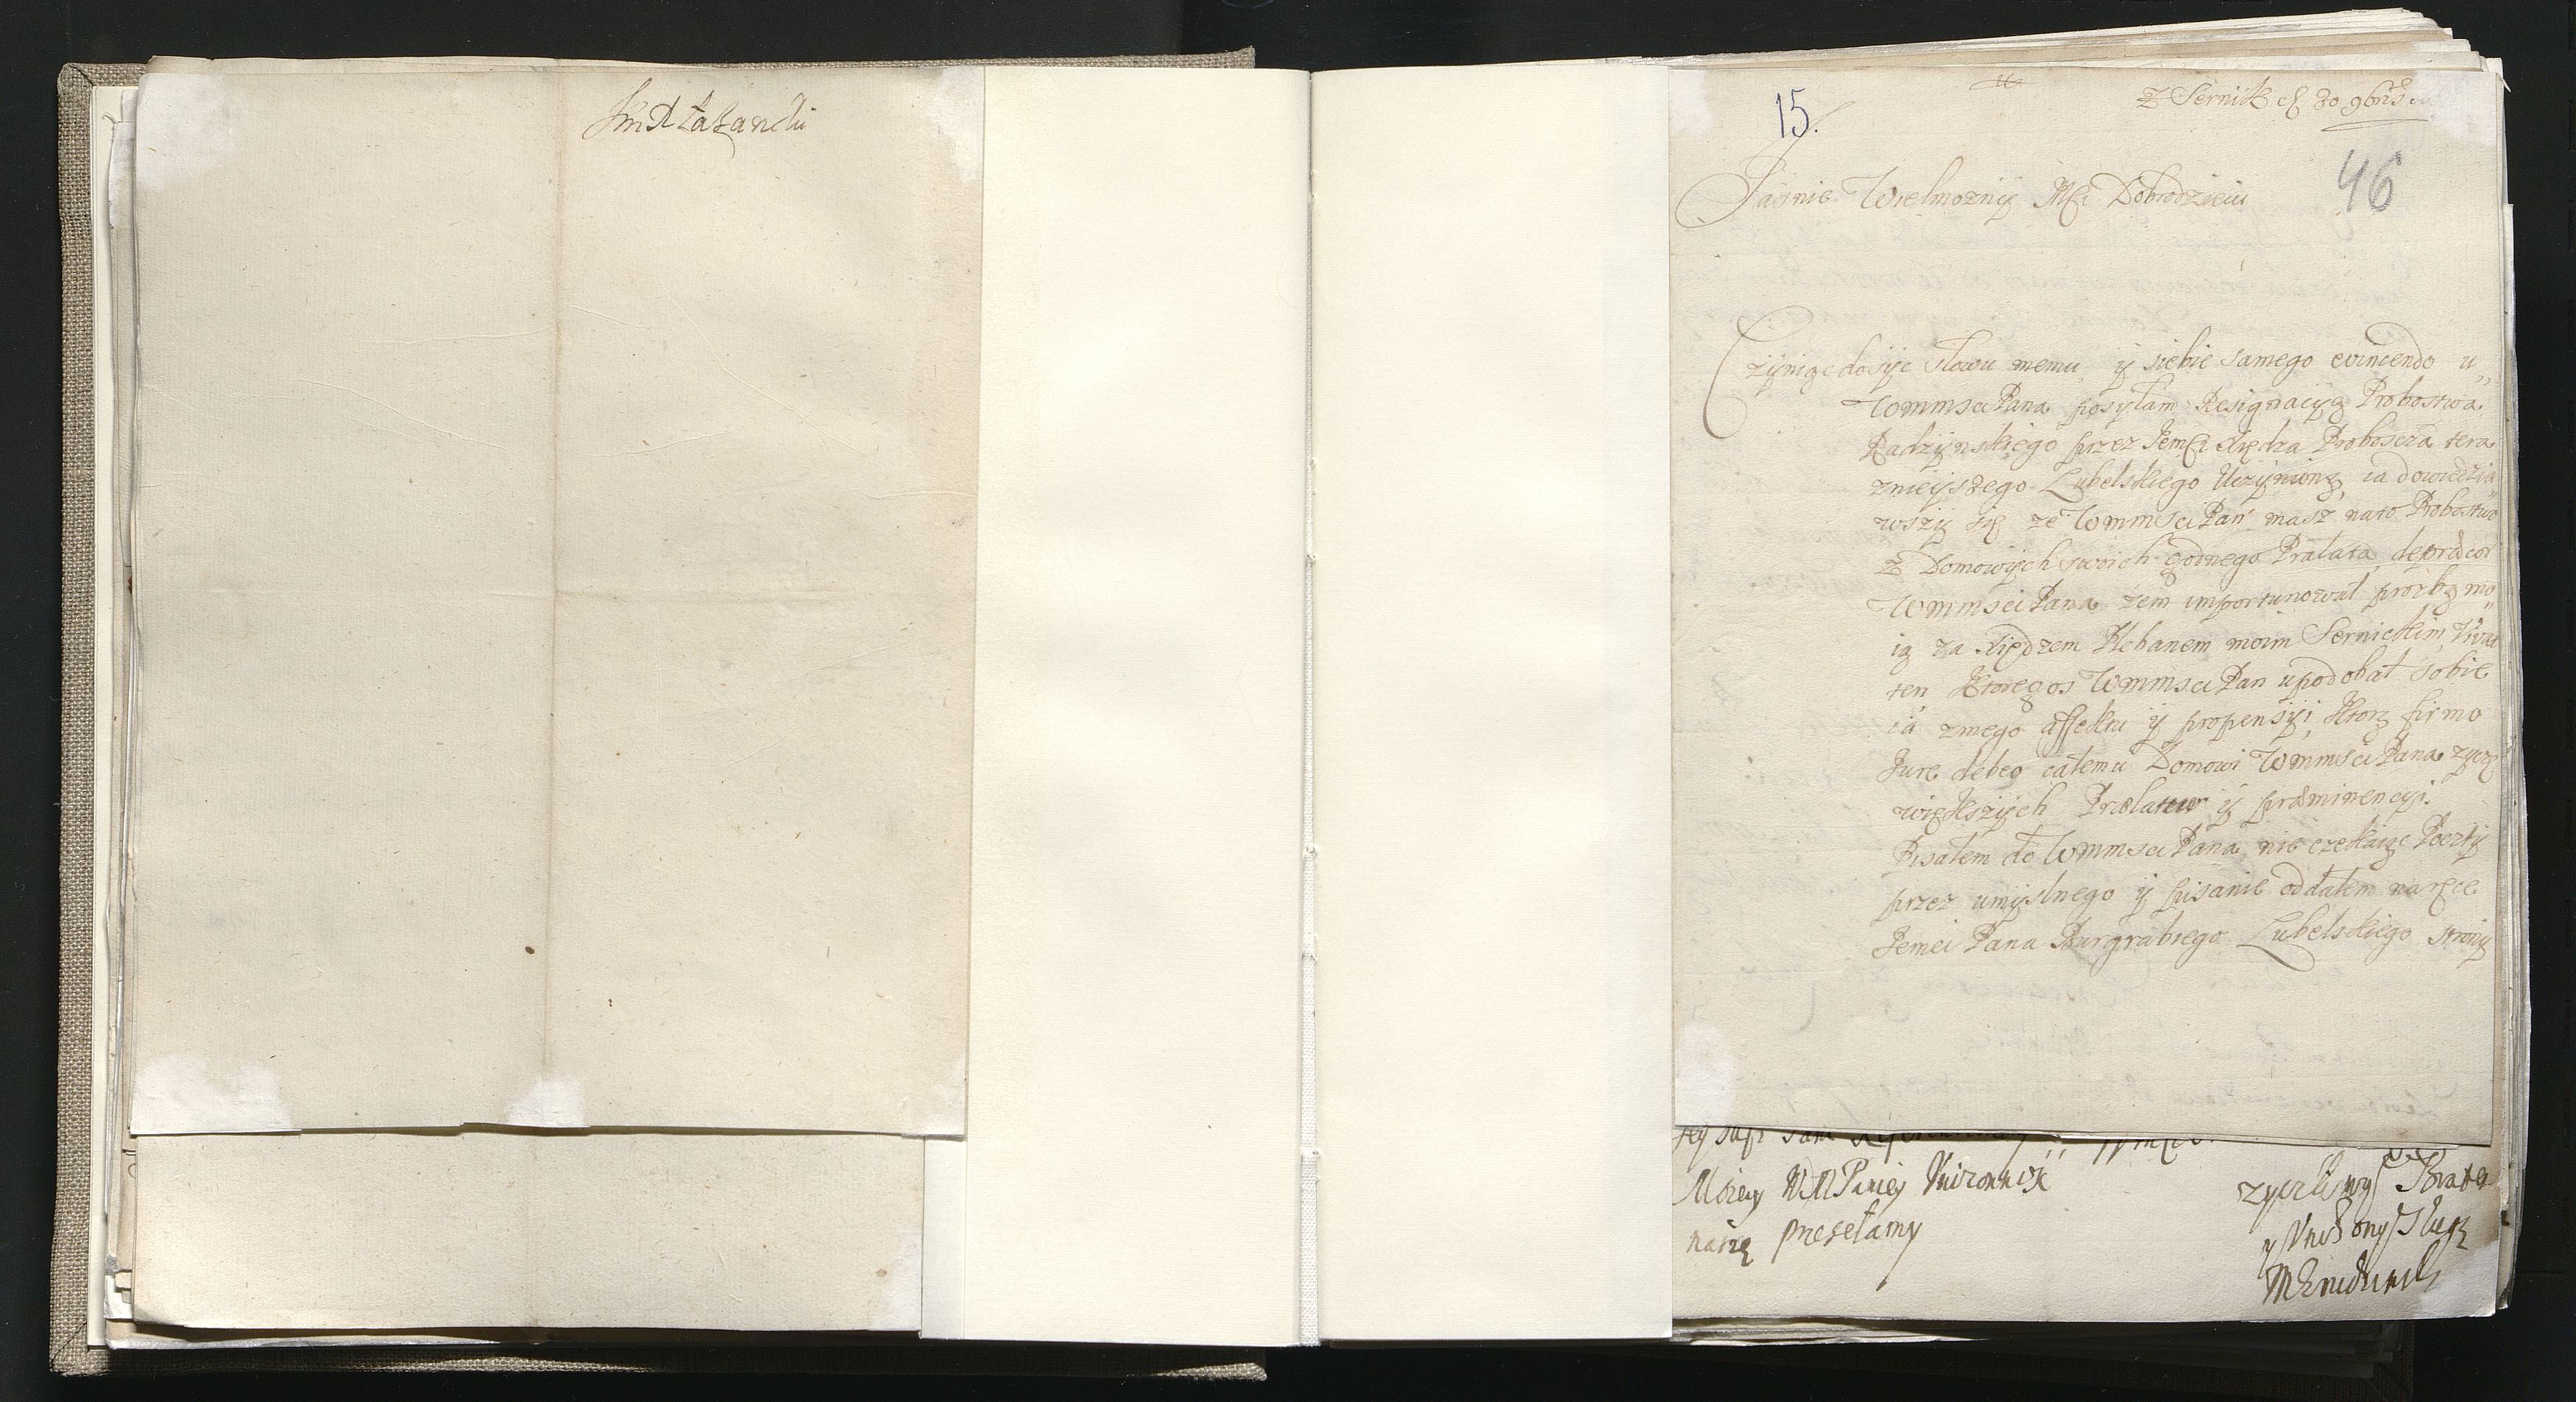 15.
Z Sernik d 30 9bris
46
Jasnie Wielmozny Mci Dobrodzieiu
Czyniąc dosyc słowu memu y siebie samego evincendo u
WmmsciPana posyłam Resignacyą Probostwa
Radzynskiego przez Jemci Xiędza Proboscza tera
znieyszego Lubelskiego Uczynioną, ia dowiedzia
wszy się ze WmmsciPan masz na to Probostwo
z Domowych swoich godnego Prałata, deprecor
WmmsciPana zem importunował prozbą mo
ią za Xiędzem Plebanem moim Sernickim, Vivat
ten ktoregos WmmsciPan upodobał sobie
ia z mego affektu y propensyi, ktorą firmo
Jure debeo całemu Domowi WmmsciPana zyczę
większych Prælatur y præminencyi.
Pisałem do WmmsciPana nie czekaiąc Poczty
przez umyslnego y pisanie oddałem na ręce
Jemci Pana Burgrabiego Lubelskiego strony
Moiey WMPaniey
naszę przesełamy
zyczliwy Brat
y Sługa